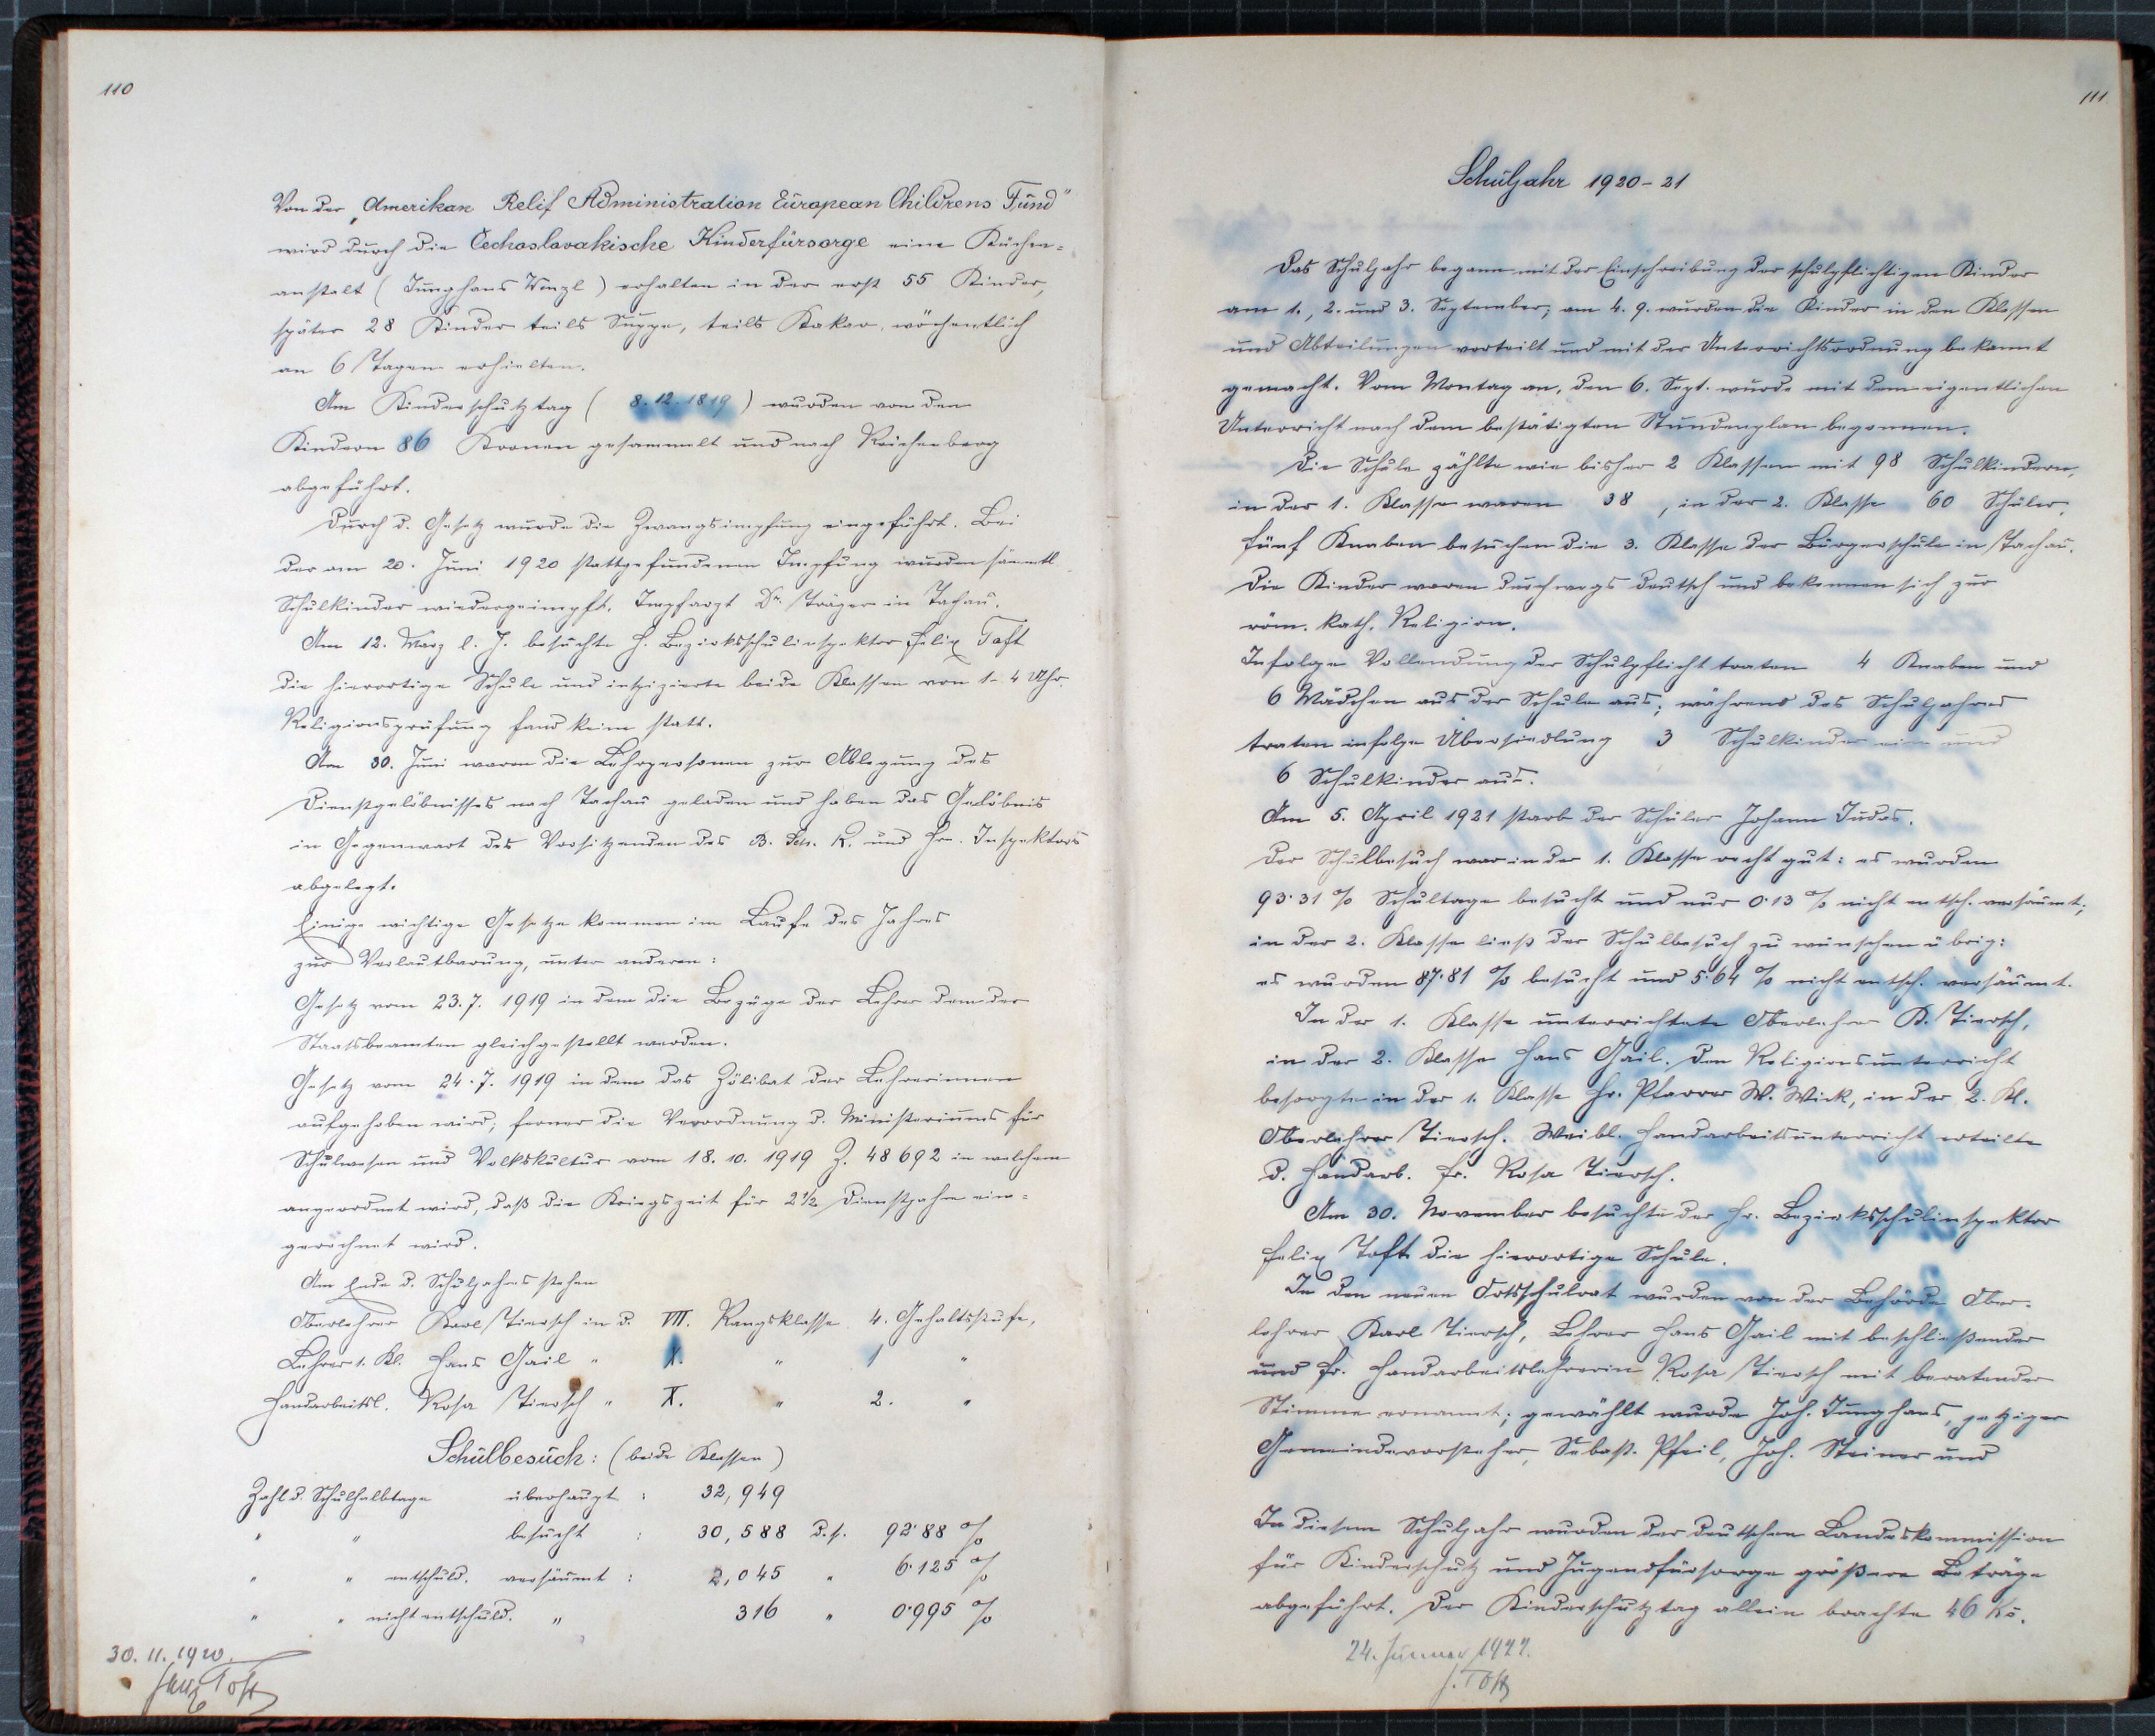 110
Von der „Amerikan Relif Administration European Childrens Fund"
wird durch die Čechoslovakische Kinderfürsorge eine Küchen=
anstalt (Junghans Wenzl) erhalten in der erst 55 Kinder,
später 28 Kinder teils Suppe, teils Kakao, wöchentlich
an 6 Tagen erhielten.
Am Kinderschutztag (8.12.1819) wurden von den
Kindern 86 Kronen gesammelt und nach Reichenberg
abgeführt.
Durch d. Gesetz wurde die Zwangsimpfung eingeführt. Bei
der am 20. Juni 1920 stattgefundenen Impfung wurden sämmtl.
Schulkinder wiedergeimpft. Impfarzt Dr. Träger in Tachau.
Am 12. März l. J. besuchte H. Bezirksschulinspektor Felix Toft
die hierortige Schule und inspizierte beide Klassen von 1-4 Uhr.
Religionsprüfung fand keine statt.
Am 30. Juni waren die Lehrpersonen zur Ablegung des
Dienstgelöbnisses nach Tachau geladen und haben das Gelöbnis
in Gegenwart des Vorsitzenden des B. Sch. R. und Hr. Inspektors
abgelegt.
Einige wichtige Gesetze kommen im Laufe des Jahres
zur Verlautbarung, unter anderen:
Gesetz vom 23.7. 1919 in dem die Bezüge der Lehrer dem der
Staatsbeamten gleichgestellt werden.
Gesetz vom 24.7. 1919 in dem das Zölibat der Lehrerinnen
aufgehoben wird; ferner die Verordnung d. Ministeriums für
Schulwesen und Volkskultur vom 18. 10. 1919 Z. 48692 in welchem
angeordnet wird, daß die Kriegszeit für 2½ Dienstjahre ein=
gerechnet wird.
Am Ende d. Schuljahres stehen
Oberlehrer Karl Tiersch in d. VIII. Rangsklasse 4. Gehaltsstufe,
Lehrer 1. Kl. Hans Gail " X. " 1 "
Handarbeitsl. Rosa Tiersch " X. " 2. "
Schulbesuch: (beide Klassen)
Zahl d. Schulhalbtage überhaupt : 32,949
" " besucht : 30,588 d.s. 92·88 %
" " entschuld. versäumt : 2,045 " 6·125 %
" " nicht entschuld. " 316 " 0·995 %
30. 11. 1920.
Felix Toft
111
Schuljahr 1920-21
Das Schuljahr begann mit der Einschreibung der schulpflichtigen Kinder
am 1., 2. und 3. September; am 4. 9. wurden die Kinder in den Klassen
und Abteilungen verteilt und mit der Unterrichtsordnung bekannt
gemacht. Vom Montag an, den 6. Sept. wurde mit dem eigentlichen
Unterricht nach dem bestätigten Stundenplan begonnen.
Die Schule zählte wie bisher 2 Klassen mit 98 Schulkindern,
in der 1. Klasse waren 38 , in der 2. Klasse 60 Schüler,
fünf Knaben besuchen die 3. Klasse der Bürgerschule in Tachau.
Die Kinder waren durchwegs deutsch und bekennen sich zur
röm. kath. Religion.
Infolge Vollendung der Schulpflicht traten 4 Knaben und
6 Mädchen aus der Schule aus; während des Schuljahres
traten infolge Übersiedlung 3 Schulkinder ein und
6 Schulkinder aus.
Am 5. April 1921 starb der Schüler Johann Judas.
Der Schulbesuch war in der 1. Klasse recht gut: es wurden
93·31 % Schultage besucht und nur 0·13 % nicht entsch. versäumt;
in der 2. Klasse ließ der Schulbesuch zu wünschen übrig:
es wurden 87·81 % besucht und 5·64 % nicht entsch. versäumt.
In der 1. Klasse unterrichtete Oberlehrer K. Tiersch,
in der 2. Klasse Hans Gail. Den Religionsunterricht
besorgte in der 1. Klasse Hr. Pfarrer W. Wick, in der 2. Kl.
Oberlehrer Tiersch. Weibl. Handarbeitsunterricht erteilte
d. Handarb. Fr. Rosa Tiersch.
Am 30. November besuchte der Hr. Bezirksschulinspektor
Felix Toft die hierortige Schule.
In den neuen Ortsschulrat wurden von der Behörde Ober-
lehrer Karl Tiersch, Lehrer Hans Gail mit beschließender
und Fr. Handarbeitslehrerin Rosa Tiersch mit beratender
Stimme ernannt; gewählt wurde Joh. Junghans, jetziger
Gemeindevorsteher, Sebast. Pfeil, Joh. Steiner und
In diesem Schuljahr wurden der deutschen Landeskommission
für Kinderschutz und Jugendfürsorge größere Beträge
abgeführt. Der Kinderschutztag allein brachte 46 Kč.
24. Jänner 1922.
F. Toft